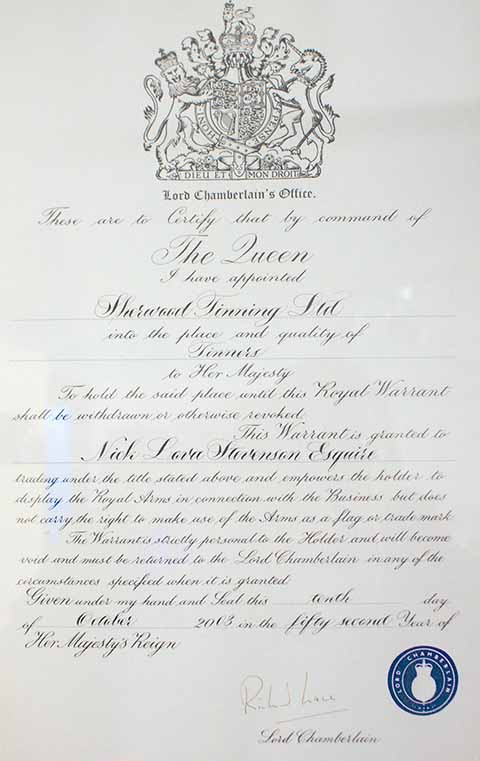 HONI
PENS
DIEU ET MON DROIT
Lord Chamberlain's Office.
These are to Certify that by command of
The Queen
I have appointed
Sherwood Tinning Ltd
into the place and quality of
Tinners
to Her Majesty
To hold the said place until this Royal Warrant
shall be withdrawn or otherwise revoked
This Warrant is granted to
Nick Lova Stevenson Esquire
trading under the title stated above and empowers the holder to
display the Royal Arms in connection with the Business but does
not carry the right to make use of the Arms as a flag or trade mark
The Warrant is strictly personal to the Holder and will become
void and must be returned to the Lord Chamberlain in any of the
circumstances specified when it is granted
Given under my hand and Seal this tenth day
of October 2003 in the fifty second Year of
Her Majesty's Reign
LORD CHAMBERLAIN
Richard Luce
Lord Chamberlain